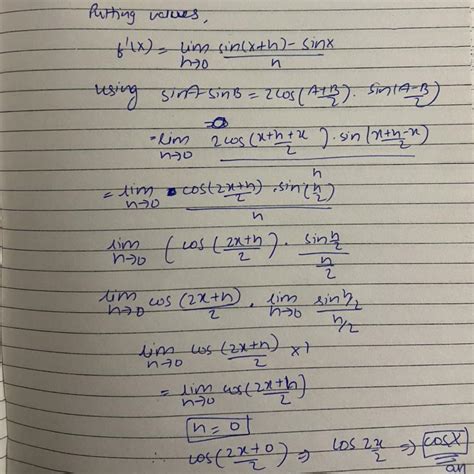 Putting values,
f'(x) = lim h→0 (sin(x+h) - sinx)/h
using sinA-sinB = 2cos(A+B/2). sin(A-B/2)
= lim h→0 (2cos(x+h+x/2) . sin(x+h-x/2))/h
= lim h→0 (cos(2x+h/2) . sin(h/2))/h
lim h→0 (cos(2x+h/2) . (sin h/2)/(h/2)
lim h→0 cos(2x+h)/2 . lim h→0 (sin h/2)/(h/2)
lim h→0 cos(2x+h/2) x1
= lim h→0 cos(2x+h/2)
h = 0
∴ cos(2x+0/2) ⇒ cos 2x/2 ⇒ cosx
an